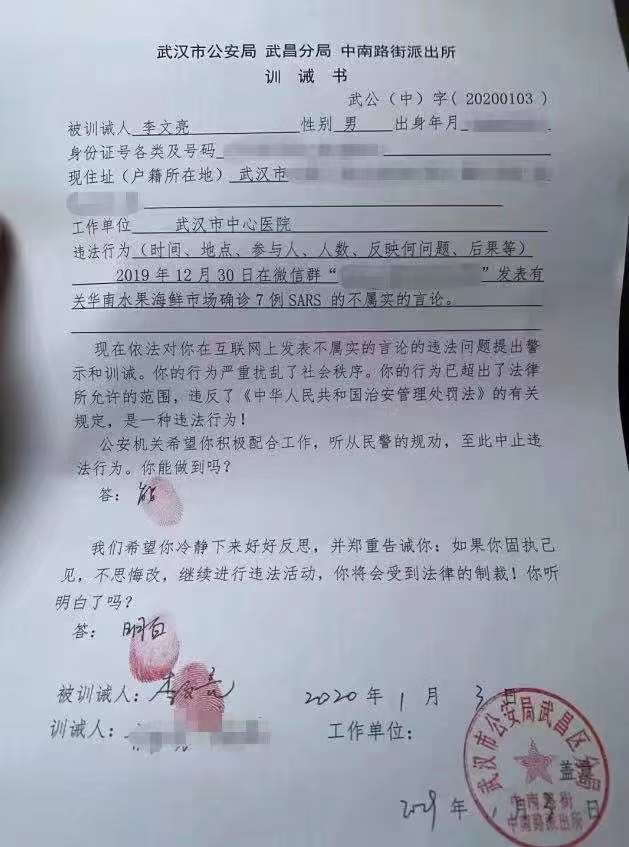 武汉市公安局 武昌分局 中南路街派出所
训 诫 书
武公（中）字（20200103）
被训诫人 李文亮 性别 男 出身年月
身份证号各类及号码
现住址（户籍所在地） 武汉市
工作单位 武汉市中心医院
违法行为（时间、地点、参与人、人数、反映何问题、后果等）
2019年12月30日在微信群“ ”发表有
关华南水果海鲜市场确诊7例SARS的不属实的言论。
现在依法对你在互联网上发表不属实的言论的违法问题提出警
示和训诫。你的行为严重扰乱了社会秩序。你的行为已超出了法律
所允许的范围，违反了《中华人民共和国治安管理处罚法》的有关
规定，是一种违法行为！
公安机关希望你积极配合工作，听从民警的规劝，至此中止违
法行为。你能做到吗？
答：能
我们希望你冷静下来好好反思，并郑重告诫你：如果你固执己
见，不思悔改，继续进行违法活动，你将会受到法律的制裁！你听
明白了吗？
答：明白
被训诫人：李文亮 2020年1月3日
训诫人： 工作单位：
武汉市公安局武昌区分局
盖章
中南路街
中南路派出所
年 月 日